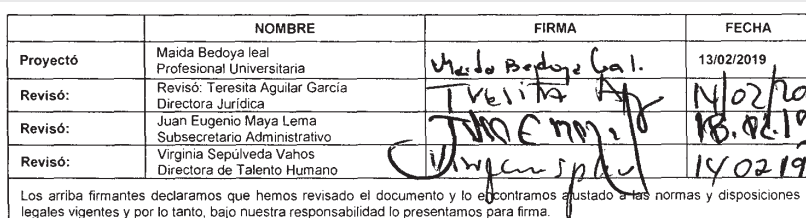 NOMBRE FIRMA FECHA
Proyectó Maida Bedoya leal Profesional Universitaria Maida Bedoya Leal. 13/02/2019
Revisó: Revisó: Teresita Aguilar García Directora Jurídica 14/02/20
Revisó: Juan Eugenio Maya Lema Subsecretario Administrativo 18.02.19
Revisó: Virginia Sepúlveda Vahos Directora de Talento Humano 14 02 19
Los arriba firmantes declaramos que hemos revisado el documento y lo encontramos ajustado a las normas y disposiciones
legales vigentes y por lo tanto, bajo nuestra responsabilidad lo presentamos para firma.